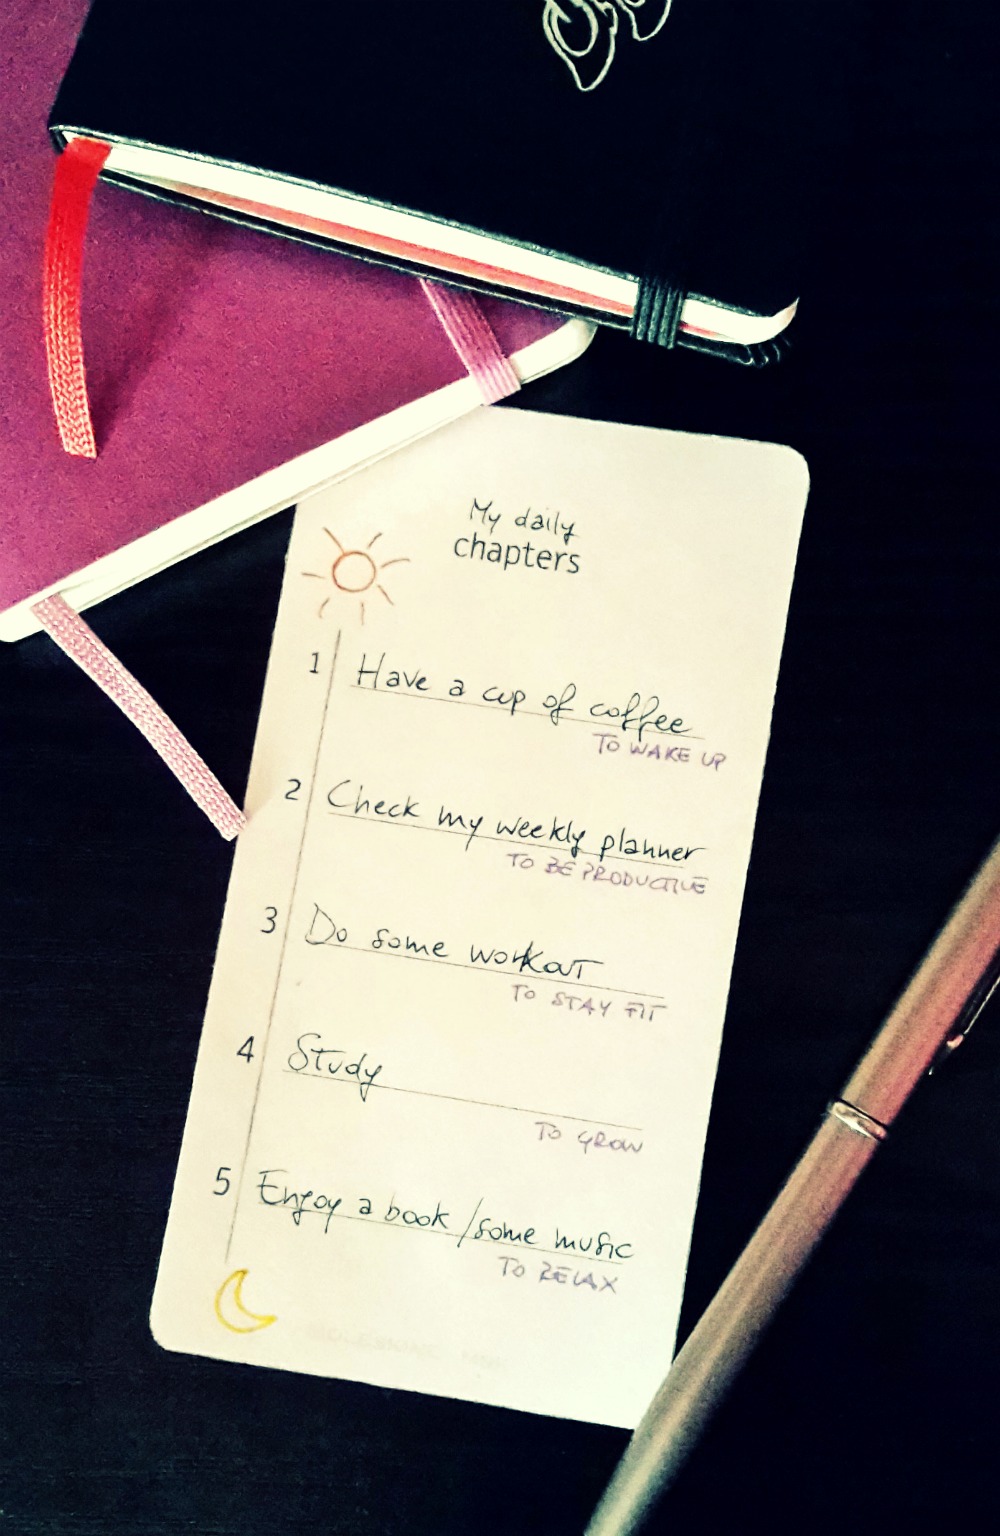 My daily
chapters
1 Have a cup of coffee
TO WAKE UP
2 Check my weekly planner
TO BE PRODUCTIVE
3 Do some workout
TO STAY FIT
4 Study
TO GROW
5 Enjoy a book / some music
TO RELAX